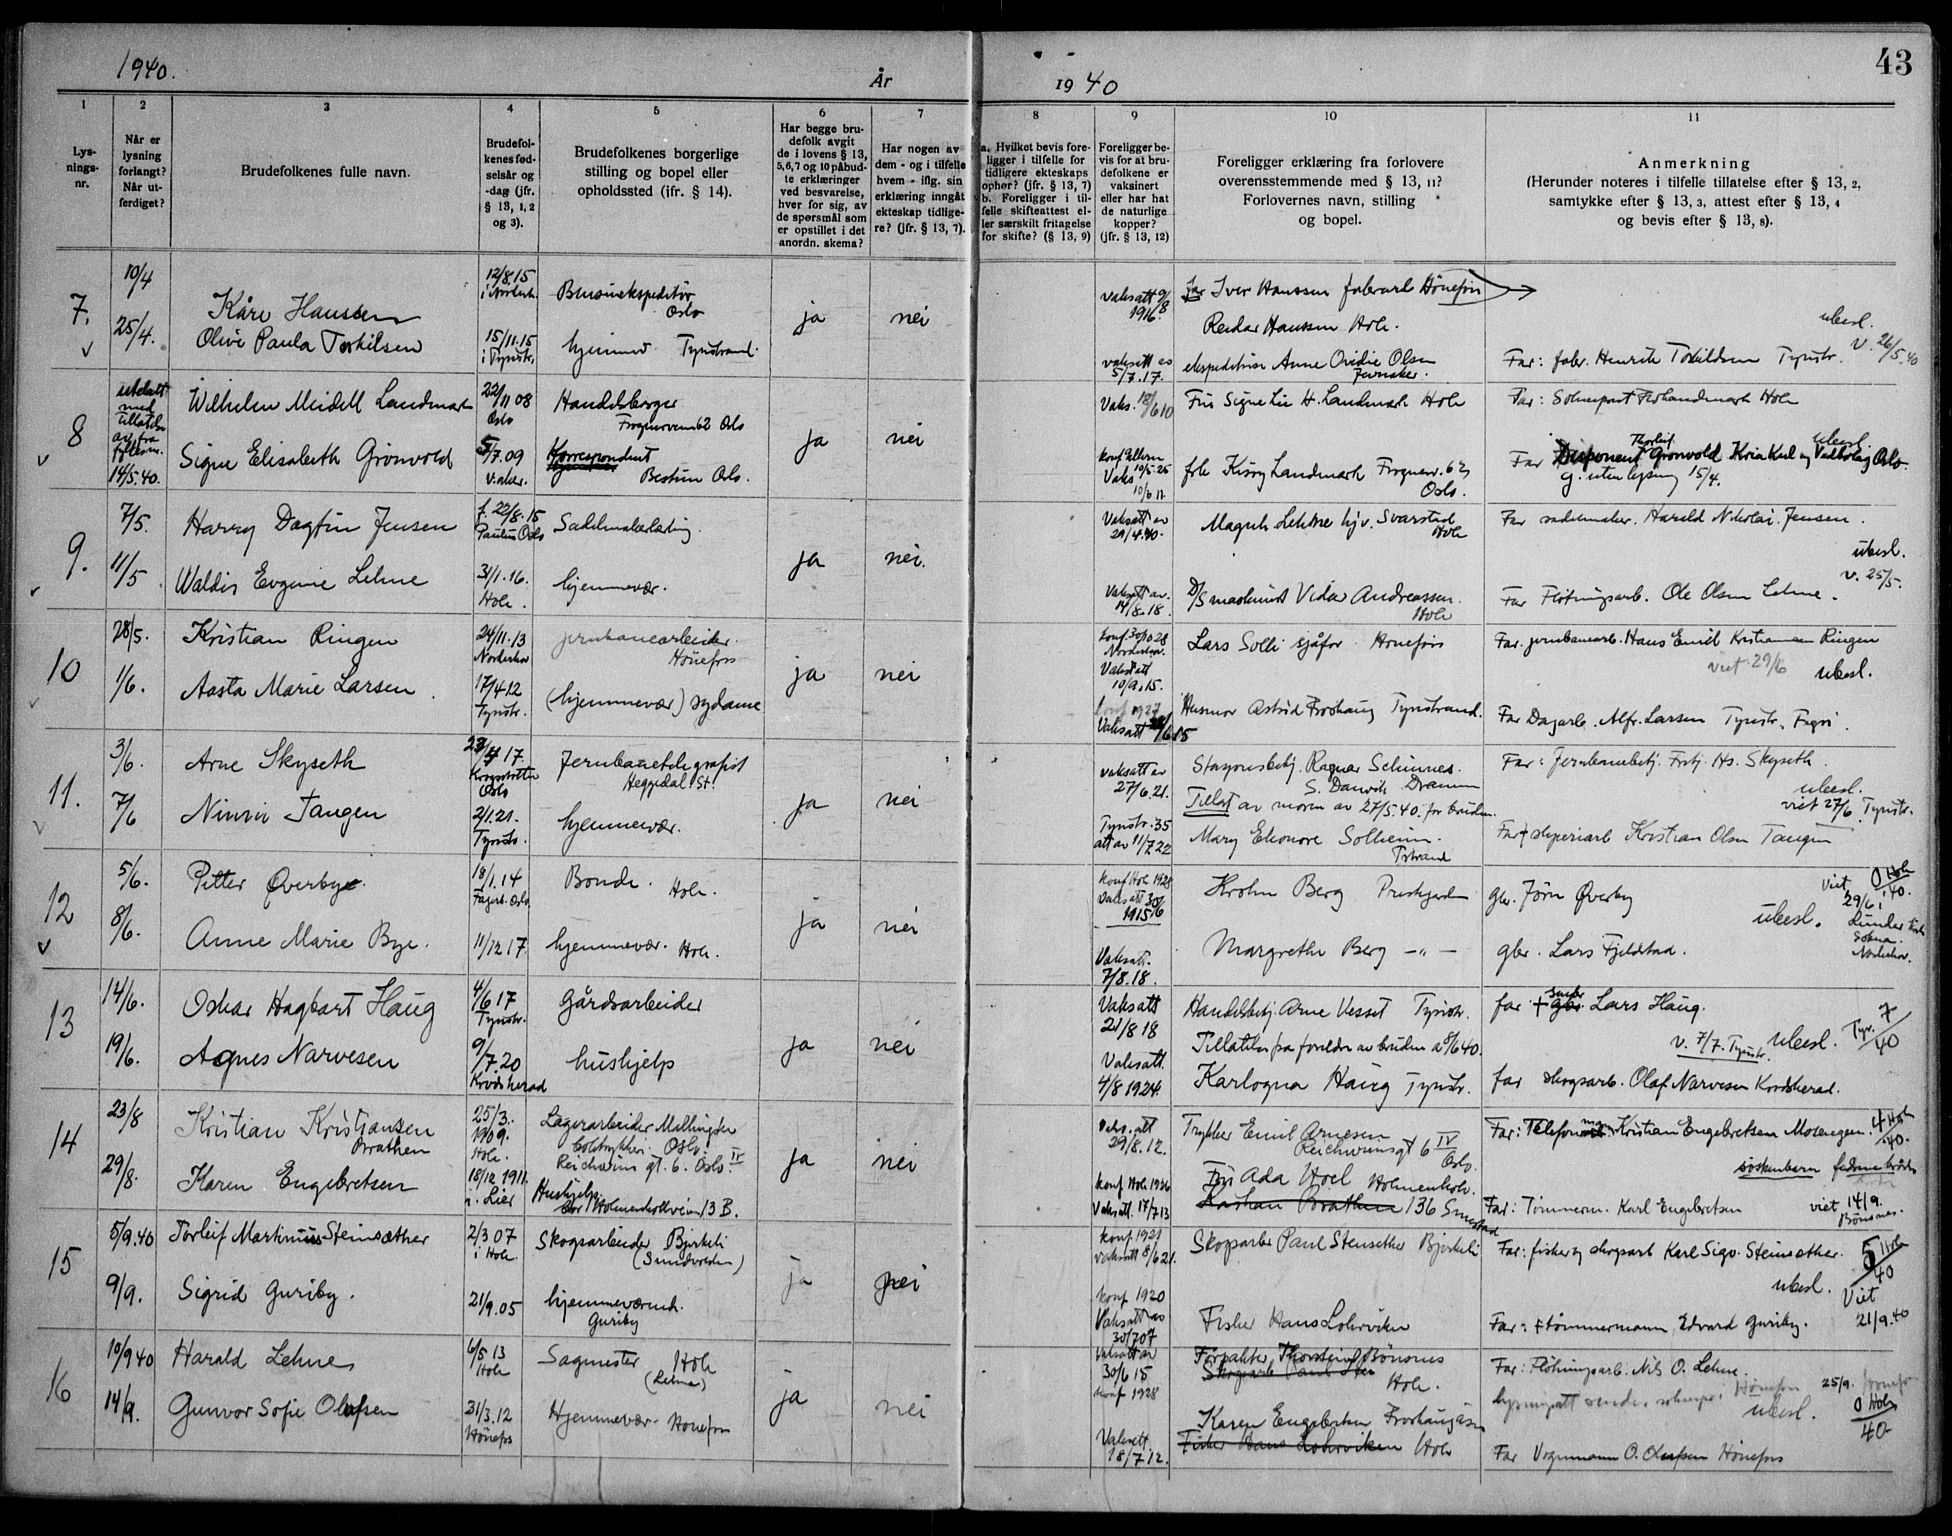 1940.
År
19 40
43
1
2
3
4
5
6
7
8
9
10
11
Lysningsnr.
Når er lysning forlangt? Når utferdiget?
Brudefolkenes fulle navn.
Brudefolkenes fødselsår og -dag (jfr. § 13, 1, 2 og 3).
Brudefolkenes borgerlige stilling og bopel eller opholdssted (ifr. § 14).
Har begge brudefolk avgit de i lovens § 13, 5, 6, 7 og 10 påbudte erklæringer ved besvarelse, hver for sig, av de spørsmål som er opstillet i det anordn. skema?
Har nogen av dem - og i tilfelle hvem - iflg. sin erklæring inngått ekteskap tidligere? (jfr. § 13, 7).
a. Hvilket bevis foreligger i tilfelle for tidligere ekteskaps ophør? (jfr. § 13, 7) b. Foreligger i tilfelle skifteattest eller særskilt fritagelse for skifte? (§ 13, 9)
Foreligger bevis for at brudefolkene er vaksinert eller har hat de naturlige kopper? (jfr. § 13, 12)
Foreligger erklæring fra forlovere overensstemmende med § 13, 11? Forlovernes navn, stilling og bopel.
Anmerkning
(Herunder noteres i tilfelle tillatelse efter § 13, 2, samtykke efter § 13, 3, attest efter § 13, 4 og bevis efter § 13, 8).
7.
10/4
25/4.
Kåre Hanssen
Olive Paula Torkilsen
12/8.15
15/11.15
i Tynstr.
Oslo
hjemmev. Tynstrand.
ja
nei
vaksatt 9/8
1916.
Far Iver Hanssen
Hønefoss
Reidar Hanssen Hole.
vaksatt av
5/7.17.
Anne Ovidie Olsen
Jevnaker.
ubesl.
v. 26/5.40
Far: fabr. Henrik Torkildsen Tynstr.
8
utelatt med tillatelse
av fra fylkesm.
14/5.40.
Wilhelm Meidell Landmark
Signe Elisabeth Grønvold
22/11 08
Oslo
5/7.09
V. aker.
Handelsborger
Frognerveien 62 Oslo
Korrespondent
Bestum Oslo.
ja
nei
Vaks. 12/6 10
Vaks
10/6 11.
Fru Signe Lie H. Landmark Hole
Landmark Frognerv. 62
Oslo.
Far:
Landmark Hole
ubesl.
Far Disponent Thorleif Grønvold
Oslo.
g. uten lysning 15/4.
9.
7/5.
11/5
Harry Dagfin Jensen
Waldis Evgenie Lehne
f. 22/8.15
Paulus Oslo
31/1.16.
Hole.
Salmakerlærling.
hjemmevær.
ja
nei.
Vaksatt av
29/4.40.
Vaksatt av.
14/8.18.
Magnh. Lehne hjv. Svarstad
Hole
D/S maskinist Vidar Andreassen.
Hole
Far sadelmaker. Harald Nikolai Jensen.
ubesl.
v. 25/5.
Far Fløtningsarb. Ole Olsen Lehne.
10
28/5.
1/6.
Kristian Ringen
Aasta Marie Larsen.
24/11.13
Norderhov
17/4 12
Tynstr.
jernbanearbeider.
Hønefoss
(hjemmevær) sydame
ja
nei
Norderhov.
Vaksatt
10/9.15.
konf 1927
Vaksatt 28/6 15
Lars Solli sjåfør. Hønefoss
Husmor Astrid Froshaug Tynstrand.
Far. jernbanearb. Hans Emil Kristiansen Ringen
viet 29/6
ubesl.
Far Dagarb. Alfr. Larsen Tynstr.
11.
3/6.
7/6
Arne Skyseth
Ninni Tangen
Oslo
2/1.21.
Tynstr.
Jernbanetelegrafist
Heggedal St.
hjemmevær.
ja
nei
vaksatt av
27/6.21.
Tynstr. 35
att av 11/7 22
Stasjonsbetj. Ragnar Schinnes.
Drammen
Tillat av moren av 27/5.40. for bruden.
Mary Eleonore Solheim.
Tstrand
Far: Jernbanebetj. Frtj. Hs. Skyseth.
ubesl.
viet 27/6 Tynstr.
Far † sliperiarb Kristian Olsen Tangen
12
5/6.
8/6.
Petter Øverbye.
Anne Marie Bye.
18/1.14
Fagerb. Oslo.
11/12 17.
Bonde. Hole.
hjemmevær. Hole.
ja
nei
konf Hole 1928
Vaksatt 30/6
1915
Vaksatt.
7/8.18.
Krohn Berg Prestegården
Margrethe Berg —"—
gbr. Jørn Øverby
ubesl.
Viet
29/6.
Lunder kirke
Sokna.
Norderhov.
0 Hole
40.
gbr. Lars Fjeldstad.
13
14/6.
19/6.
Oskar Hagbart Haug
Agnes Narvesen
4/6 17
Tynstr.
9/7.20
Krødsherad
Gårdsarbeider
hushjelp
ja
nei
Vaksatt
21/8 18
Vaksatt.
4/8 1924.
Handelsbetj. Arne Vesset Tynstr.
Tillatelse fra foreldre av bruden
Karlogna Haug Tynstr.
far † gbr. Lars Haug.
v. 7/7. Tynstr.
ubesl.
Tyr. 7/40
far skogsarb. Olaf Narvesen Krødsherad.
14
23/8
29/8.
Kristian Kristiansen
Braathen
Karen Engebretsen
25/3.
1909.
Hole.
18/12 1911.
i. Lier
Lagerarbeider
Oslo.
gt. 6. Oslo. IV
Hushjelp.
Holmenkollveien 13 B.
ja
nei
Vaks. att
29/8.12.
konf Hole 1926
Vaksatt. 17/7 13
Trykker Emil Arnesen
gt 6 IV
Oslo.
Frk Ada Hoel Holmenkolv.
136 Smestad
Far: Telefonm. Kristian Engebretsen Mosengen.
4 Hole
40.
søskenbarn
viet 14/9.
Bønsnes.
Far: Tømmerm. Karl Engebretsen
15
5/9.40
9/9.
Torleif Martinius Steinsæther
Sigrid Guriby.
2/3 07
i Hole.
21/9.05
Skogsarbeider Bjerkeli
(Sundvollen)
hjemmeværende.
Guriby
ja
nei
konf 1921
vaksatt 8/6 21.
konf 1920
Vaksatt av
30/7 07
Skogsarbr Paul Stensether Bjerkeli
Fisker Hans Lohrviken
Far: fisker og skogsarb Karl Sigv. Steinsæther.
5 Hole
40
ubesl.
Viet
21/9.40
Far: † tømmermann Edvard Guriby.
16
10/9 40
14/9.
Harald Lehne
Gunvor Sofie Olafsen
6/5 13
Hole
31/3.12
Hønefs
Sagmester Hole
(Lehne)
Hjemmevær. Hønefoss
ja
nei
Vaksatt av
30/6 15
konf 1928
Vaksatt
18/7 12.
Forpakter Thorstein Bønsnes
Hole.
Karen Engebretsen Froshaugåsen
Fisker Hans Lohrviken Hole
Far: Fløtningsarb. Nils O. Lehne.
25/9.
Hønefoss
ubesl.
0 Hole
40
Far Vognmann O. Olafsen Hønefoss